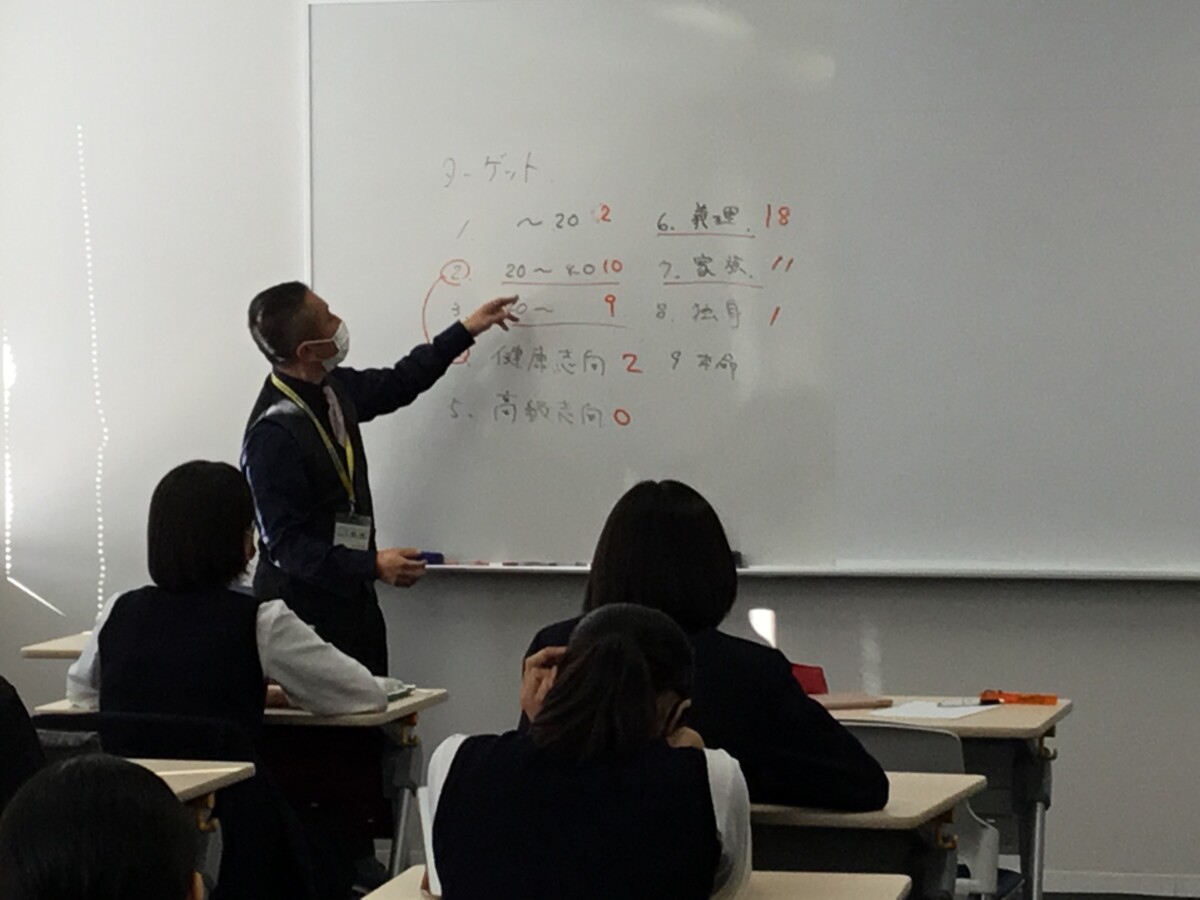 ターゲット
1. ～20 2
2. 20～40 10
3. 0～ 9
健康志向 2
5. 高級志向 0
6. 義理. 18
7. 家族. 11
8. 独身 1
9 本命